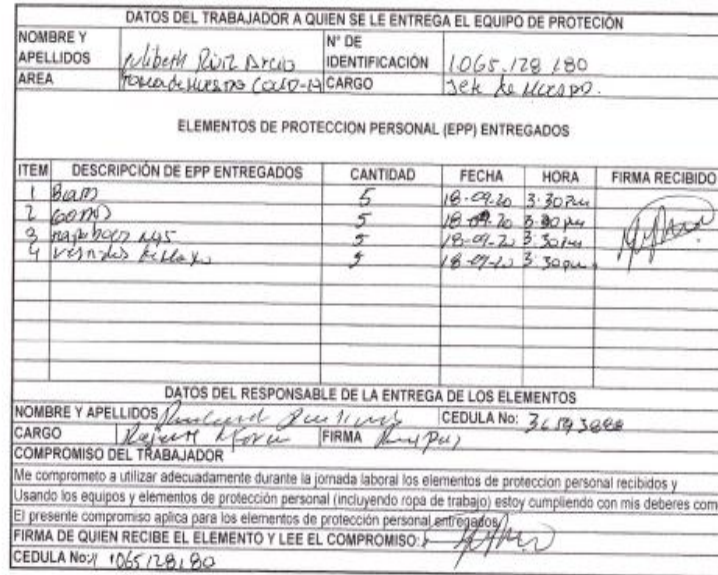 DATOS DEL TRABAJADOR A QUIEN SE LE ENTREGA EL EQUIPO DE PROTECIÓN
NOMBRE Y APELLIDOS Ruiz N° DE IDENTIFICACIÓN 1065.128.180
AREA Toma de Muestras Covid-19 CARGO Jefe de
ELEMENTOS DE PROTECCION PERSONAL (EPP) ENTREGADOS
ITEM DESCRIPCIÓN DE EPP ENTREGADOS CANTIDAD FECHA HORA FIRMA RECIBIDO
1 Bata 5 18-09-20 3:30 pm
2 Gorro 5 18-09-20 3:30 pm
3 N95 5 18-09-20 3:30 pm
4 5 18-09-20 3:30 pm
DATOS DEL RESPONSABLE DE LA ENTREGA DE LOS ELEMENTOS
NOMBRE Y APELLIDOS CEDULA No:
CARGO FIRMA
COMPROMISO DEL TRABAJADOR
Me comprometo a utilizar adecuadamente durante la jornada laboral los elementos de proteccion personal recibidos y
Usando los equipos y elementos de protección personal (incluyendo ropa de trabajo) estoy cumpliendo con mis deberes com
El presente compromiso aplica para los elementos de protección personal entregados
FIRMA DE QUIEN RECIBE EL ELEMENTO Y LEE EL COMPROMISO:
CEDULA No: 1065128180